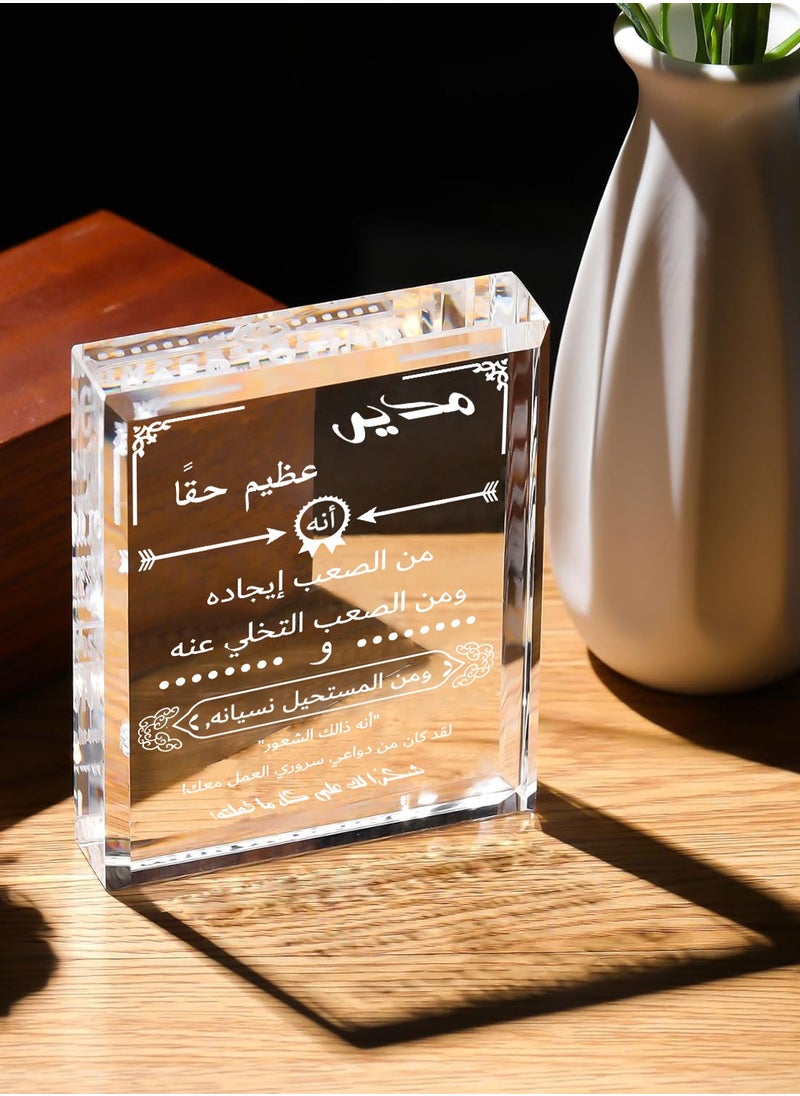 مدير
عظيم حقًا
أنه
من الصعب إيجاده
ومن الصعب التخلي عنه
و
ومن المستحيل نسيانه,
"أنه ذالك الشعور"
لقد كان من دواعي سروري العمل معك!
شكرًا لك على كل ما فعلته!